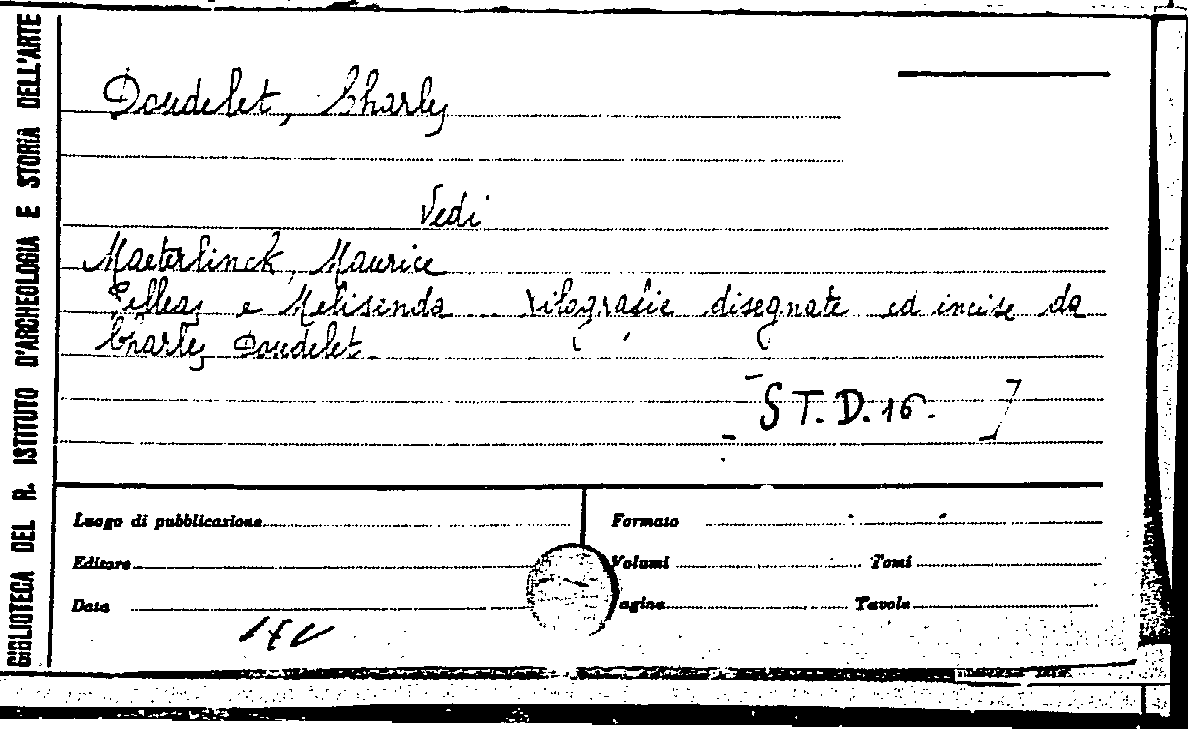 BIBLIOTECA DEL R. ISTITUTO D'ARCHEOLOGIA E STORIA DELL'ARTE
Doudelet, Charly
Vedi
Maeterlinck, Maurice
Pelleas e Melisenda... xilografie disegnate ed incise da
Charly Doudelet.
[ST.D.16.]
Luogo di pubblicazione
Formato
Editore
Volumi
Tomi
Data
agine
Tavole